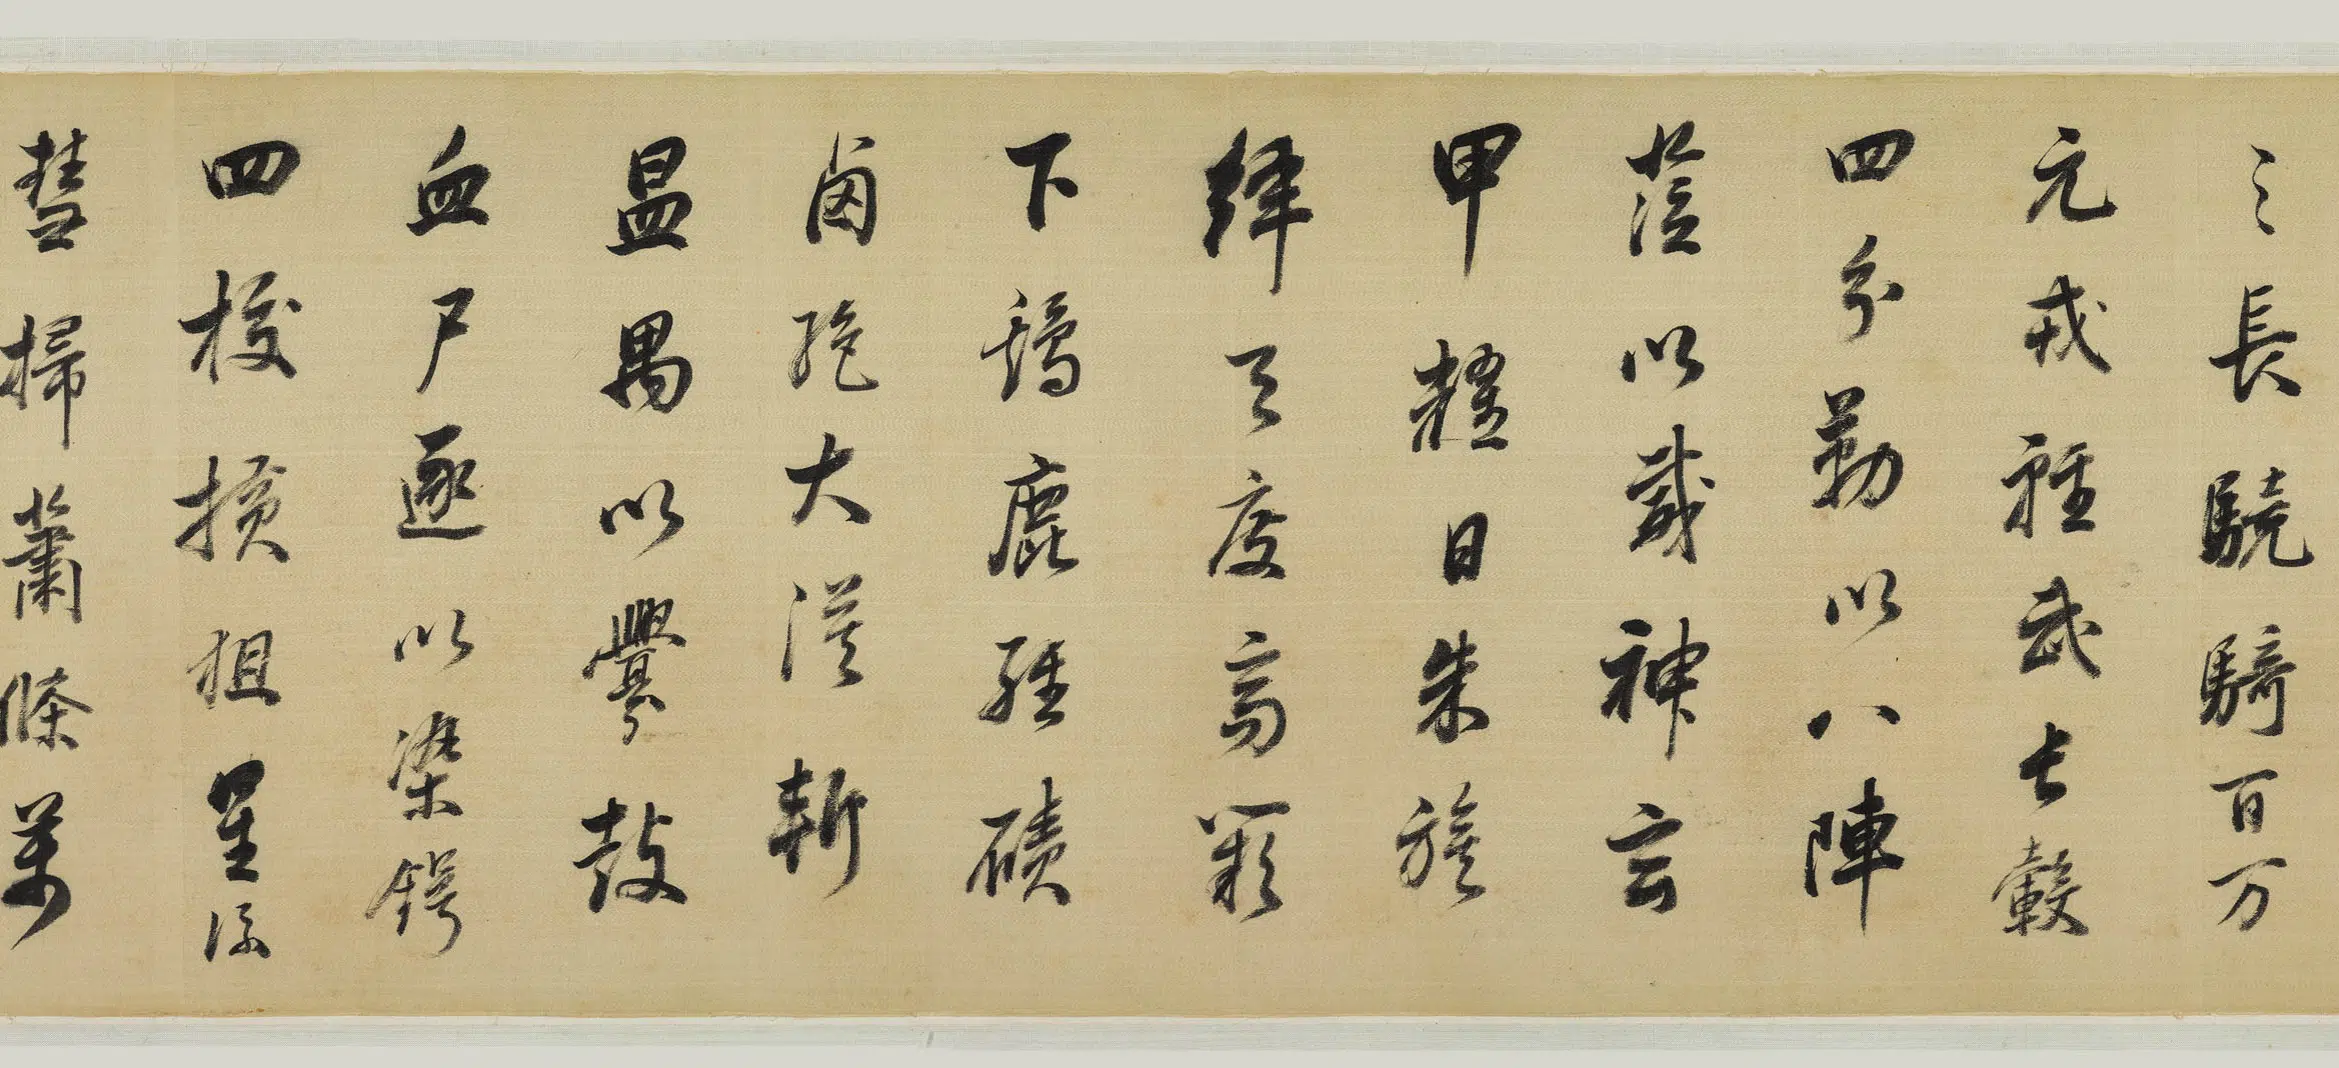 之長驍騎百万
元戎輕武長轂
四分勒以八陣
蒞以威神玄
甲耀日朱旗
絳天度高闕
下鷄鹿經磧
鹵絶大漠斬
昷禺以釁鼓
血尸逐以染鍔
四校横徂星流
彗掃蕭條萬